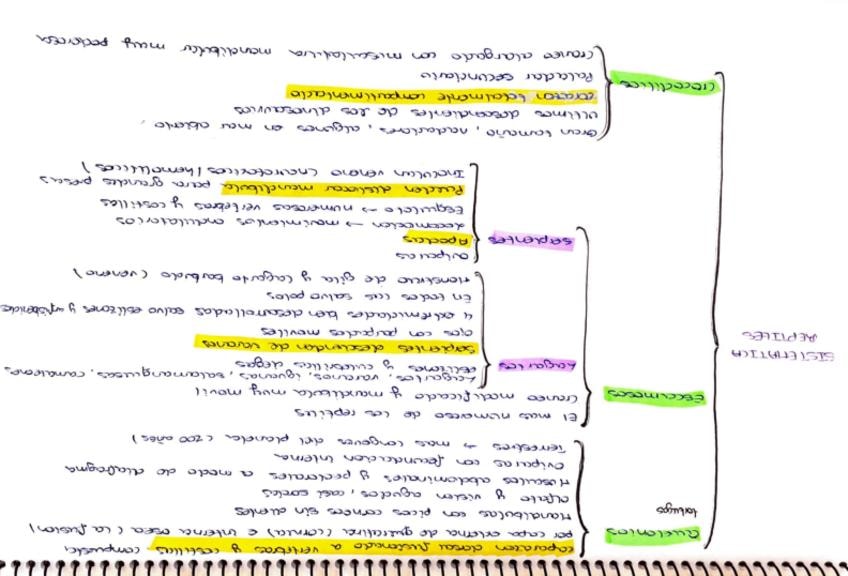 SISTEMATICA
REPTILES
Quelonios
tortugas
caparazon dorsal fusionado a vertebras y costillas compuesto
por capa externa de queratina (cornea) e interna osea (la fusion)
Mandibulas con picos corneos sin dientes
olfato y vision agudos, casi sordos
Musculos abdominales y pectorales a modo de diafragma
oviparas con fecundacion interna
Terrestres → mas longevos del planeta (200 años)
Escamosos
El mas numeroso de los reptiles
craneo modificado y mandibula muy movil
Lagartos
Lagartos, varanos, iguanas, salamanquesas, camaleones,
eslizones y culebrillas ciegas
serpientes descienden de varanos
ojos con parpados moviles
4 extremidades bien desarrolladas salvo eslizones y anfisbenidos
En todas las salvo polos
Monstruo de gila y lagarto barbudo (veneno)
serpientes
oviparas
Apodas
Locomocion → movimientos ondulatorios
Esqueleto → numerosas vertebras y costillas
Pueden dislocar mandibula para grandes presas
Inoculan veneno (neurotoxicos/hemoliticos)
crocodilios
Gran tamaño, nadadores, algunos en mar abierto.
ultimos descendientes de los dinosaurios
corazon totalmente compartimentado
Paladar secundario
Craneo alargado con musculatura mandibular muy poderosa